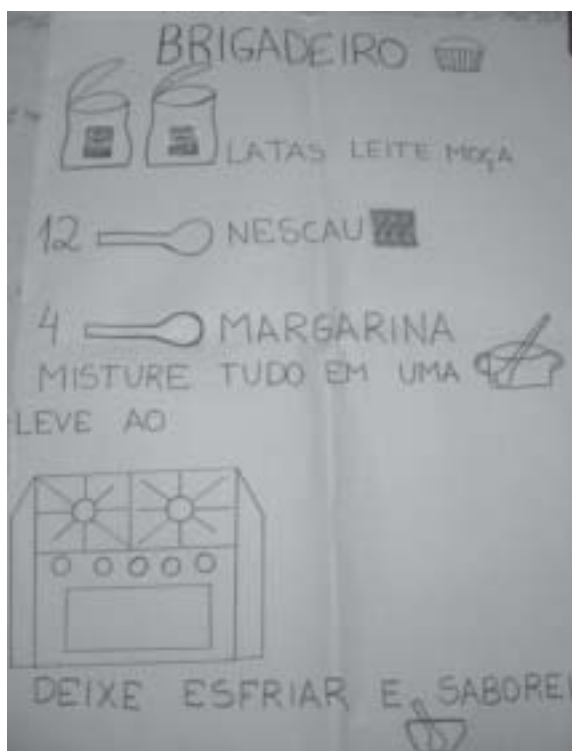 BRIGADEIRO
LATAS LEITE MOÇA
12 NESCAU
4 MARGARINA
MISTURE TUDO EM UMA
LEVE AO
DEIXE ESFRIAR E SABOREI